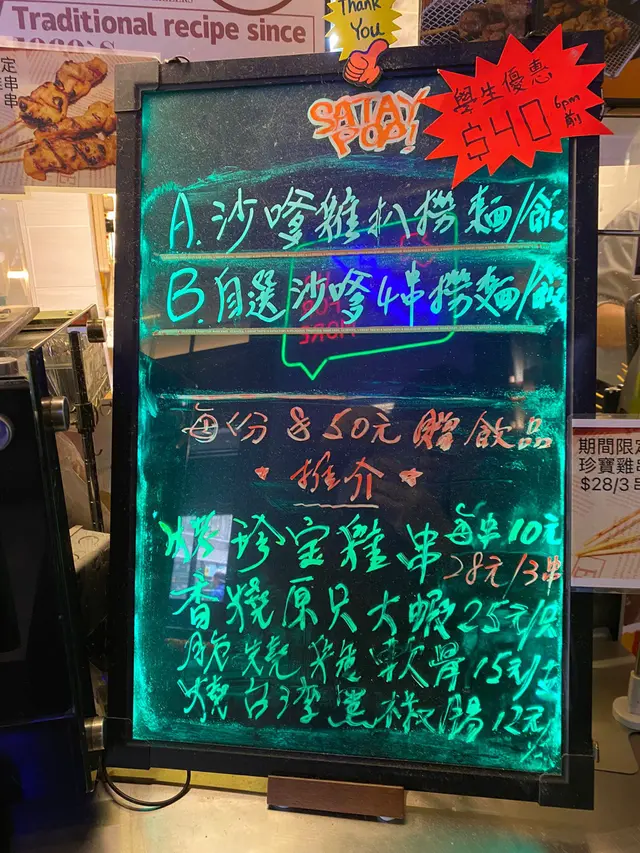 Traditional recipe since
1960's
Thank
You
SATAY
POP!
學生優惠
$40 6pm前
定
串
串
A. 沙嗲雞扒撈麵/飯
B. 自選沙嗲4串撈麵/飯
每份$50元 贈飲品
推介
燒珍宝雞串 每串10元
28元/3串
香燒原只大蝦 25元/只
脆燒雞軟骨 15元/
燒台灣黑椒腸 12元/
期間限定
珍寶雞串
$28/3串